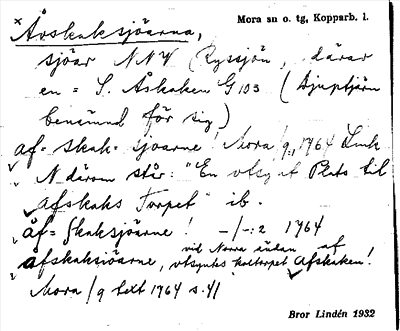 Mora sn o. tg, Kopparb. l.
× Åvskaksjöarna,
sjöar NNV Ryssjön, därav
en = S. Åskaken G 103 (Djuptjärn
benämnd för sig)
af= skak= sjoarne! Mora/9:1, 1764
N därom står: "En utsynt Plats til
Afskaks Torpet" ib.
åf= Skaksjöarne! -/-:2 1764
åfskaksiöarne, vid Norra ändan af
utsyntes koltorpet Afskaken!
Mora/9 text 1764 s. 41
Bror Lindén 1932